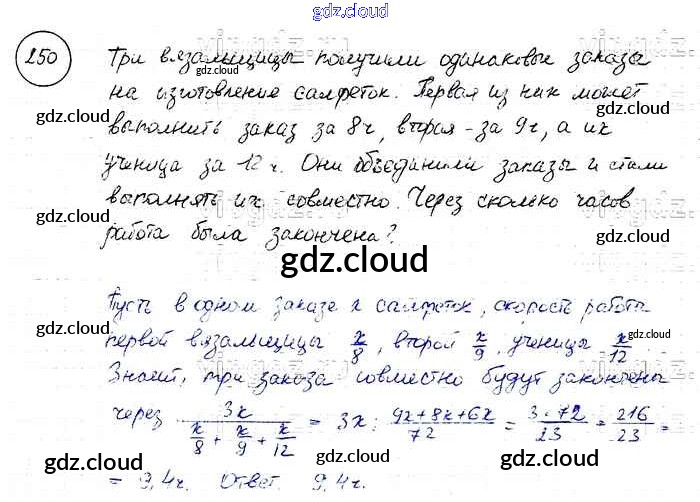 gdz.cloud
250
Три вязальщицы получили одинаковые заказы
на изготовление салфеток. Первая из них может
выполнить заказ за 8ч, вторая - за 9ч, а их
ученица за 12 ч. Они объединили заказы и стали
выполнять их совместно. Через сколько часов
работа была закончена?
gdz.cloud
Пусть в одном заказе x салфеток, скорость работы
первой вязальщицы x/8, второй x/9, ученицы x/12
Значит, три заказа совместно будут закончены
через 3x / (x/8 + x/9 + x/12) = 3x : (9x+8x+6x)/72 = 3·72/23 = 216/23 =
= 9,4ч. Ответ 9,4ч.
gdz.cloud